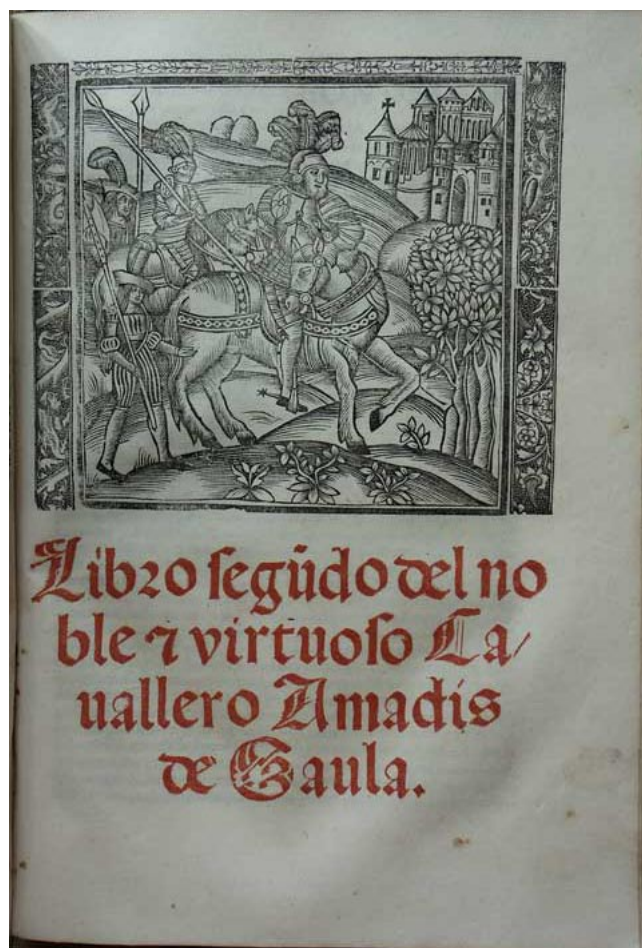 Libro ſegũdo del no
ble ⁊ virtuoſo Ca/
uallero Amadis
de Gaula.